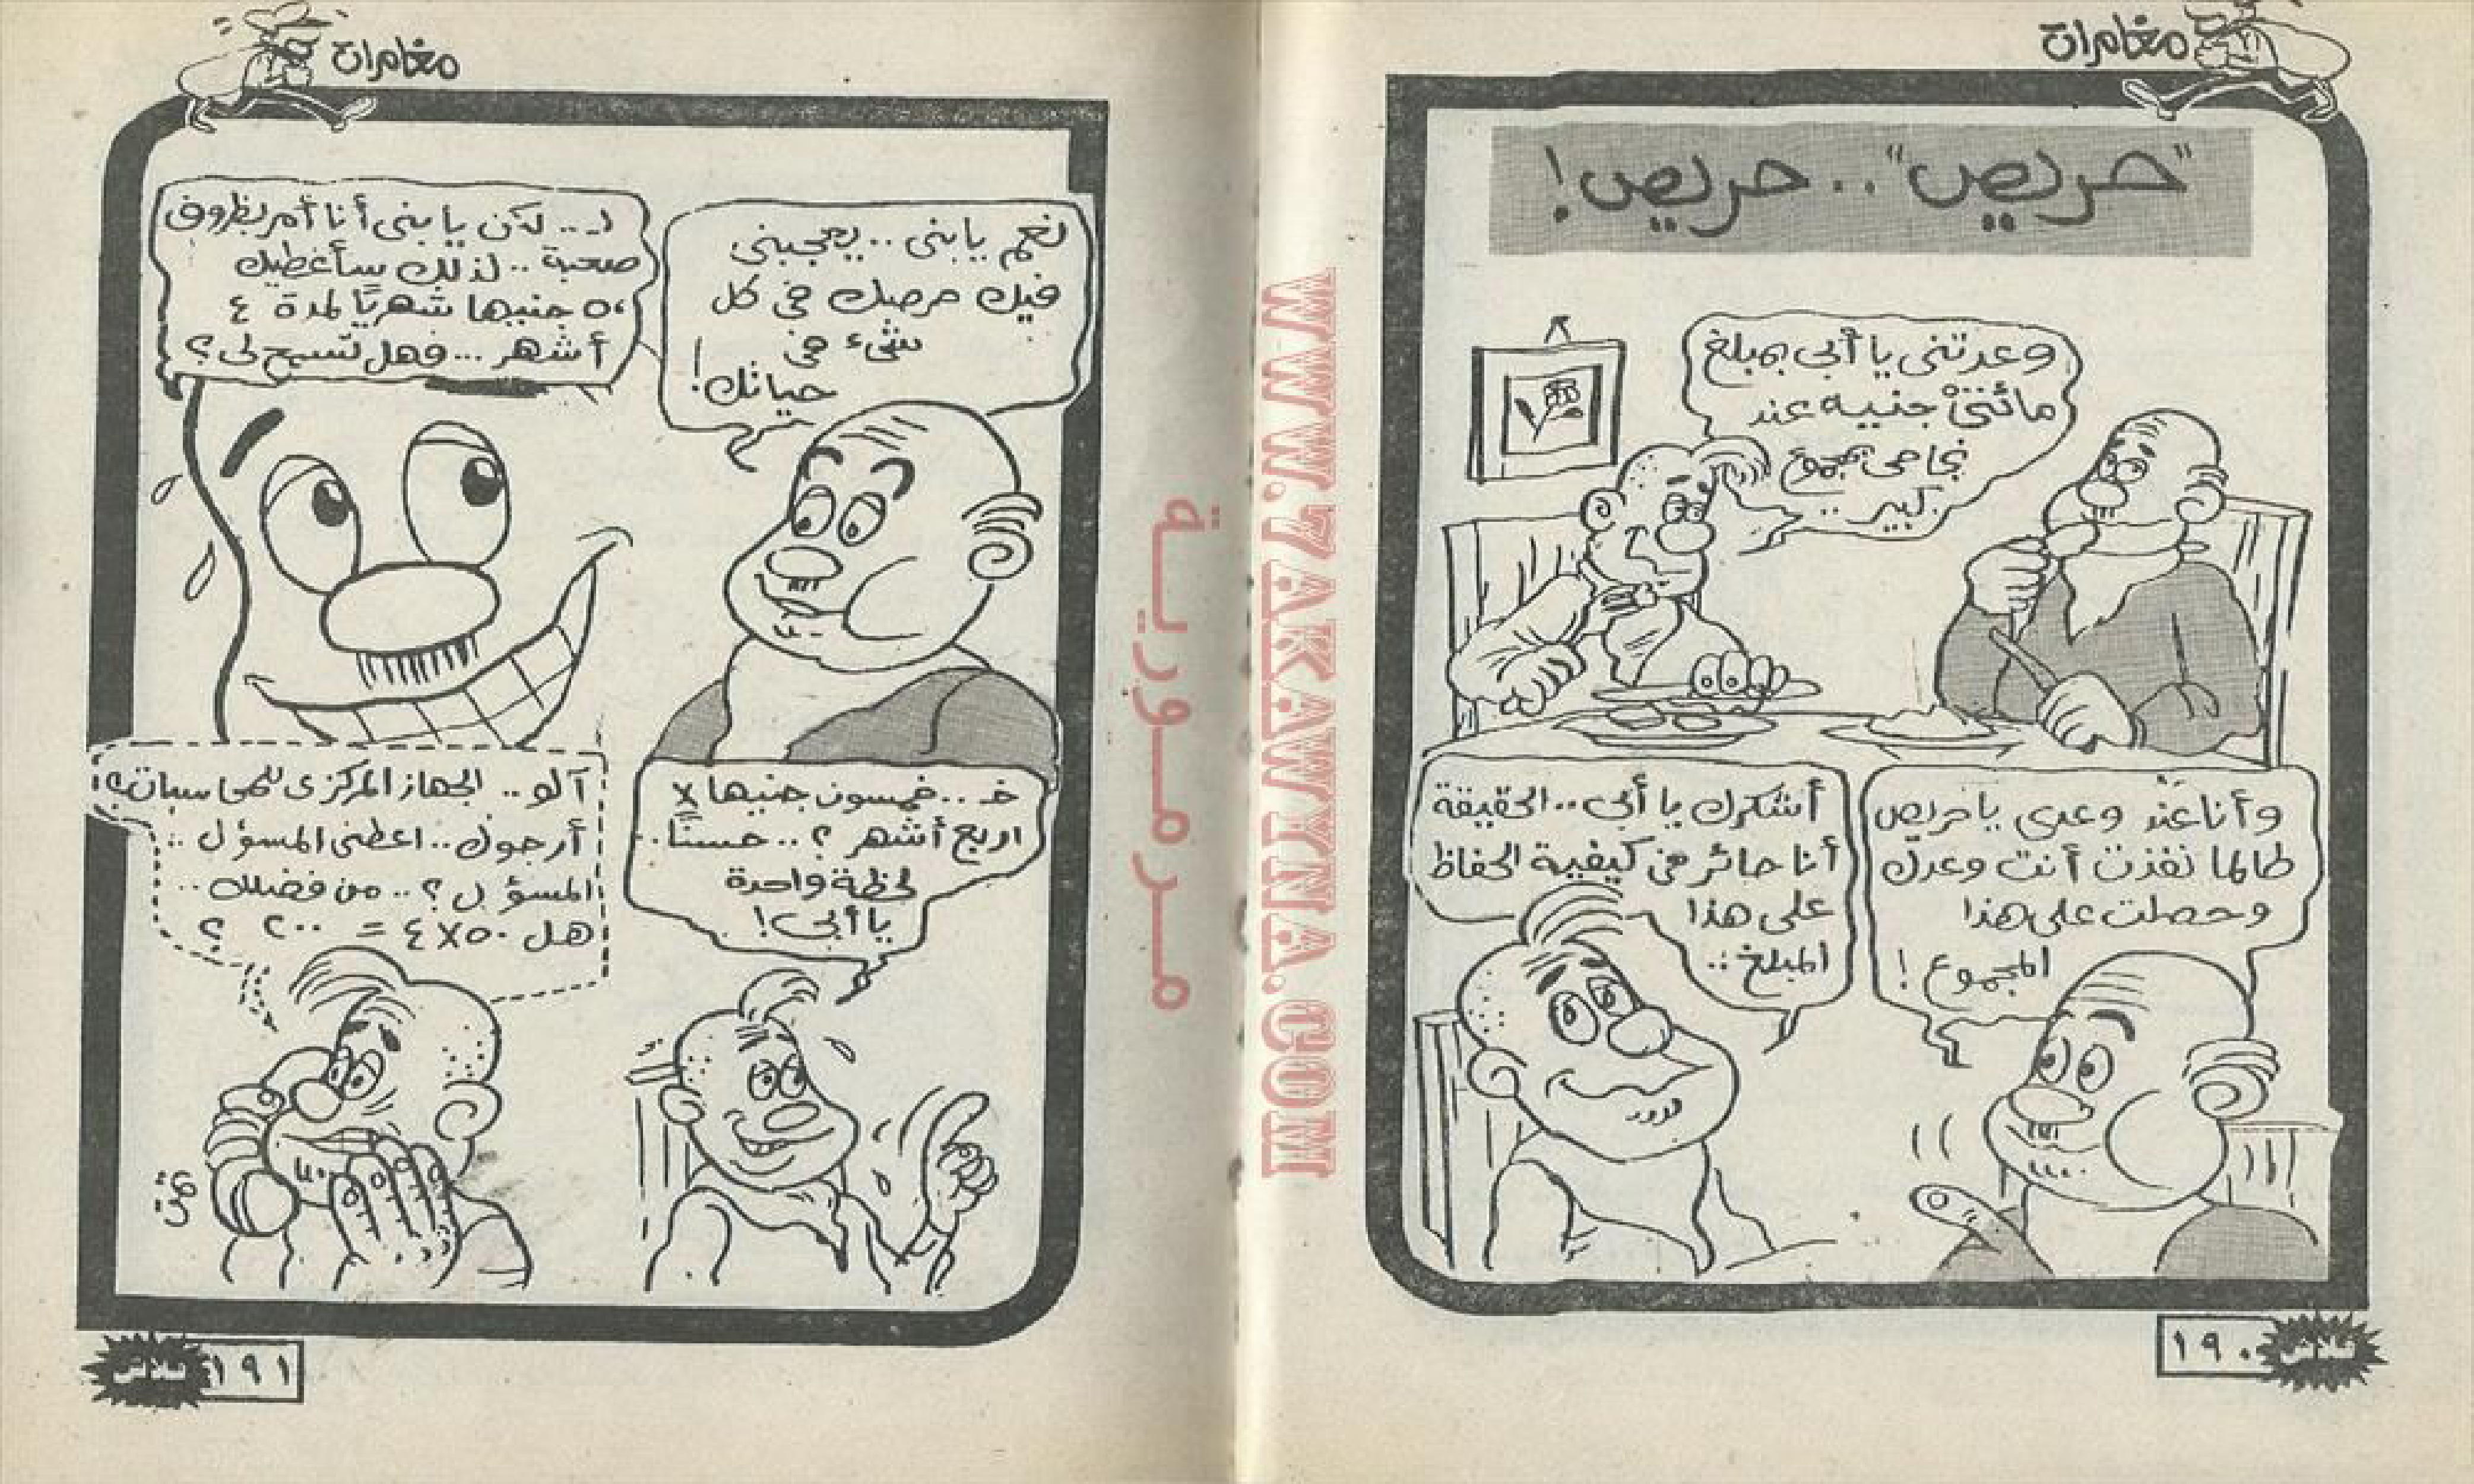 مغامرات
"حريص".. حريص!
وعدتنى يا أبى بمبلغ
مائتىْ جنيه عند
نجاحى بمجموع
كبير ..
وأنا عَنْد وعدى يا حريص
طالما نفذت أنت وعدك
وحصلت على هذا
المجموع !
أشكرك يا أبى .. الحقيقة
أنا حائر فى كيفية الحفاظ
على هذا
المبلغ ..
١٩٠
فلاش
مغامرات
نعم يا بنى .. يعجبنى
فيك حرصك فى كل
شىء فى
حياتك!
لـ ... لكن يا بنى أنا أمر بظروف
صعبة .. لذلك سأعطيك
٥٠ جنيها شهريًا لمدة ٤
أشهر ... فهل تسمح لى ؟
خـ ... خمسون جنيها X
اربع أشهر ؟ .. حسنًا ..
لحظة واحدة
يا أبى !
آلو .. الجهاز المركزى للمحاسبات ؟
أرجوك .. اعطنى المسؤل ..
المسؤل ؟ .. من فضلك ..
هل ٥٠ X ٤ = ٢٠٠ ؟
١٩١
فلاش
مرمورية
WWW.7AKAWYNA.COM